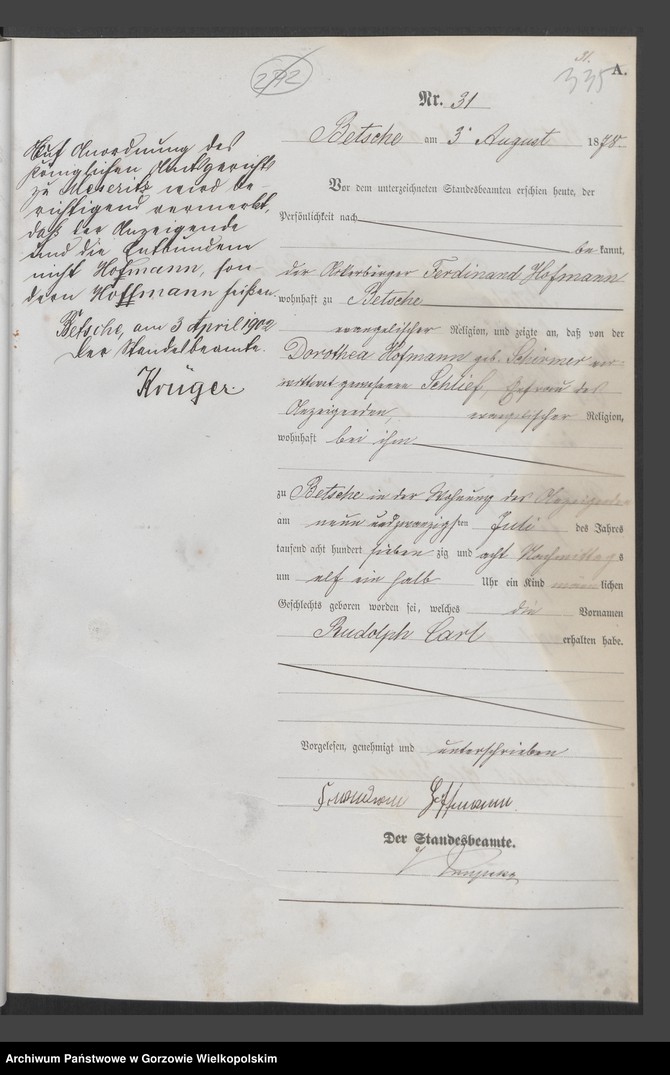 A.
31.
335
272
Nr. 31
Betsche am 3. August 1878.
Vor dem unterzeichneten Standesbeamten erschien heute, der
Persönlichkeit nach
be kannt,
der Ackerbürger Ferdinand Hofmann
wohnhaft zu Betsche
evangelischer Religion, und zeigte an, daß von der
Dorothea Hofmann geb. Schirmer ver
wittwet gewesene Schlief, Ehefrau des
Anzeigenden, evangelischer Religion,
wohnhaft bei ihm
zu Betsche in der Wohnung des Anzeigenden
am neun und zwanzigsten Juli des Jahres
tausend acht hundert sieben zig und acht Nachmittags
um elf ein halb Uhr ein Kind männlichen
Geschlechts geboren worden sei, welches die Vornamen
Rudolph Carl erhalten habe.
Vorgelesen, genehmigt und unterschrieben
Hoffmann
Der Standesbeamte.
Auf Anordnung des
Königlichen Amtsgerichts
zu Meseritz wird be-
richtigend vermerkt,
daß der Anzeigende
und die Entbundene
nicht Hofmann, son-
dern Hoffmann heißen.
Betsche, am 3 April 1902
Der Standesbeamte.
Krüger
Archiwum Państwowe w Gorzowie Wielkopolskim